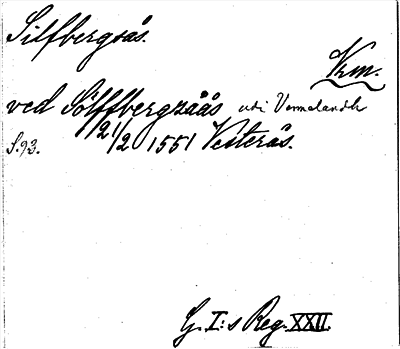 Silfbergsås.
Vrm.
ved Sölffbergzåås udi Vermelandh
S. 93. 12 1/2 1551 Vesterås.
G. I:s Reg. XXII.